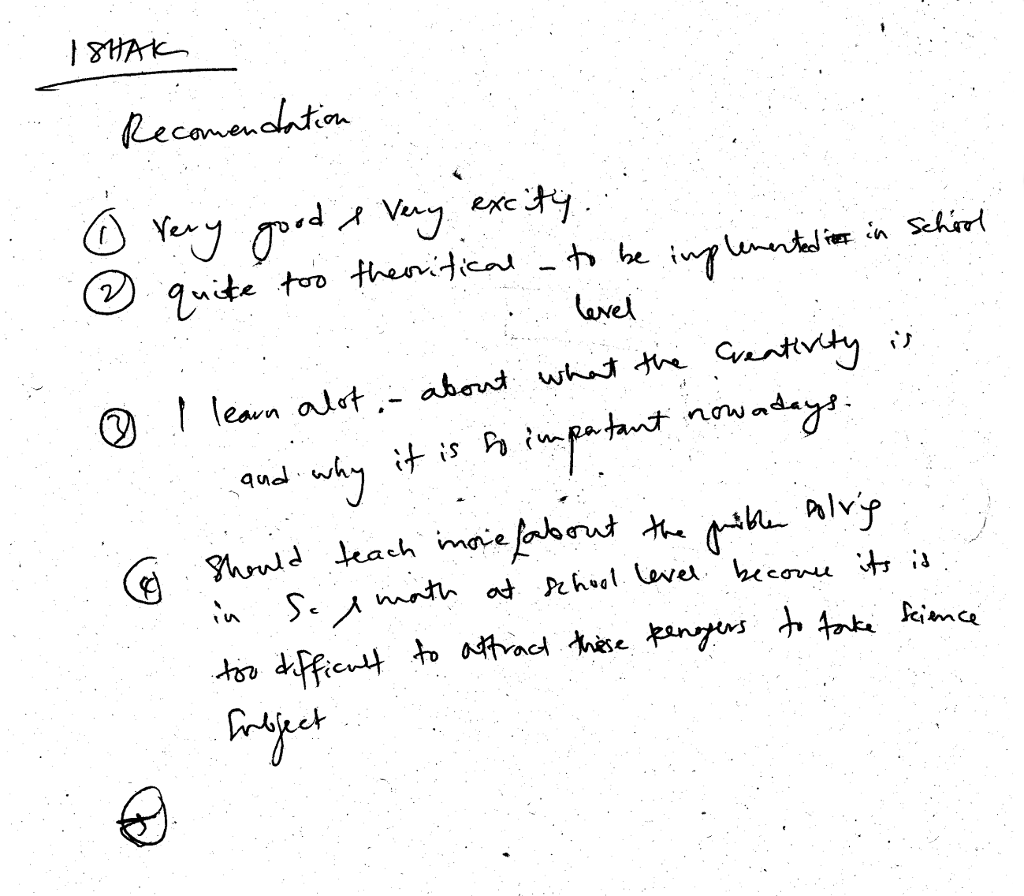 ISHAK
Recomendation
① Very good & Very excity.
② quite too theoritical - to be implemented in school
level
③ I learn alot. - about what the Creativity is
and why it is so important nowadays.
④ Should teach more about the problem solv'g
in Sc & math at school level because its is
too difficult to attract these teenagers to take Science
Subject
⑤